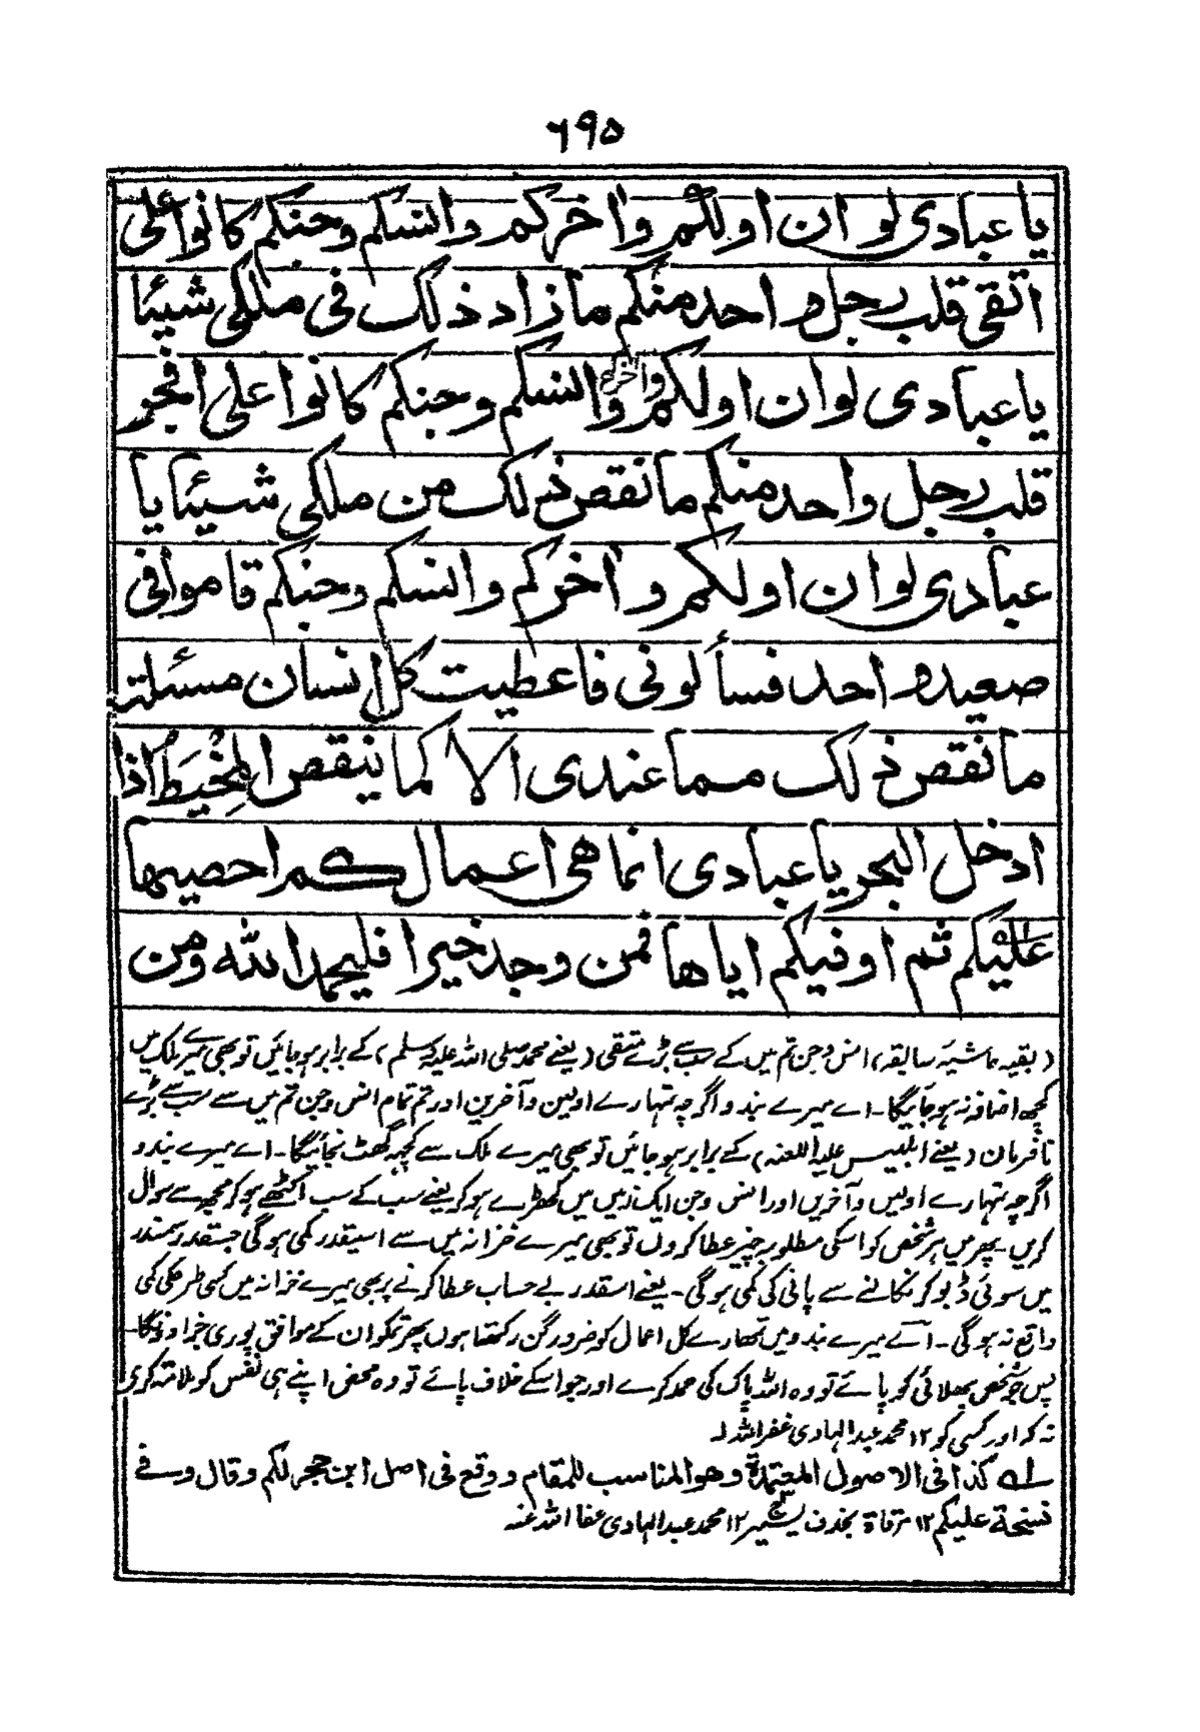 ٦٩٥
يا عبادى لو ان اولكم واخركم وانسكم وجنكم كانوا على
اتقى قلب رجل واحد منكم ما زاد ذلك فى ملكى شيئا
يا عبادى لو ان اولكم واخركم وانسكم وجنكم كانوا على افجر
قلب رجل واحد منكم ما نقص ذلك من ملكى شيئا يا
عبادى لو ان اولكم واخركم وانسكم وجنكم قاموا فى
صعيد واحد فسألونى فاعطيت كل انسان مسئلته
ما نقص ذلك مما عندى الا كما ينقص المِخْيَطُ اذا
ادخل البحر يا عبادى انما هى اعمالكم احصيها
عليكم ثم اوفيكم اياها فمن وجد خيرا فليحمد الله ومن
(بقیہ حاشیہ سابقہ) انس و جن تم میں کے سب سے بڑے متقی (یعنے محمد صلی اللہ علیہ وسلم) کے برابر ہو جائیں تو بھی میرے ملک میں
کچھ اضافہ نہ ہو جائیگا۔ اے میرے بندو اگرچہ تمہارے اولین و آخرین اور تم تمام انس و جن تم میں سے سب سے بڑے
نافرمان (یعنے ابلیس علیہ اللعنہ) کے برابر ہو جائیں تو بھی میرے ملک سے کچھ گھٹ نجائیگا۔ اے میرے بندو
اگرچہ تمہارے اولیں و آخریں اور انس و جن ایک زمیں میں کھڑے ہو کر یعنے سب کے سب اکٹھے ہو کر مجھ سے سوال
کریں۔ پھر میں ہر شخص کو اسکی مطلوبہ چیز عطا کروں تو بھی میرے خزانہ میں سے اسیقدر کمی ہوگی جسقدر سمندر
میں سوئی ڈبو کر نکالنے سے پانی کی کمی ہوگی۔ یعنے اسقدر بے حساب عطا کرنے پر بھی میرے خزانہ میں کسی طرحکی کمی
واقع نہ ہوگی۔ اے میرے بندو میں تمھارے کل اعمال کو ضرور گن رکھتا ہوں پھر تمکو ان کے موافق پوری جزا دونگا۔
پس جو شخص بھلائی کو پائے تو وہ اللہ پاک کی حمد کرے اور جو اسکے خلاف پائے تو وہ محض اپنے ہی نفس کو ملامت کری
نہ کہ اور کسی کو ١٢ محمد عبد الہادی غفر اللہ لہ
لہ كذا فى الاصول المعتمدة وهو المناسب للمقام ووقع فى اصل ابن حجر لكم وقال وفے
نسخة عليكم ١٢ مرقاة بحذف يسير ١٢ محمد عبد الہادی عفا اللہ عنہ